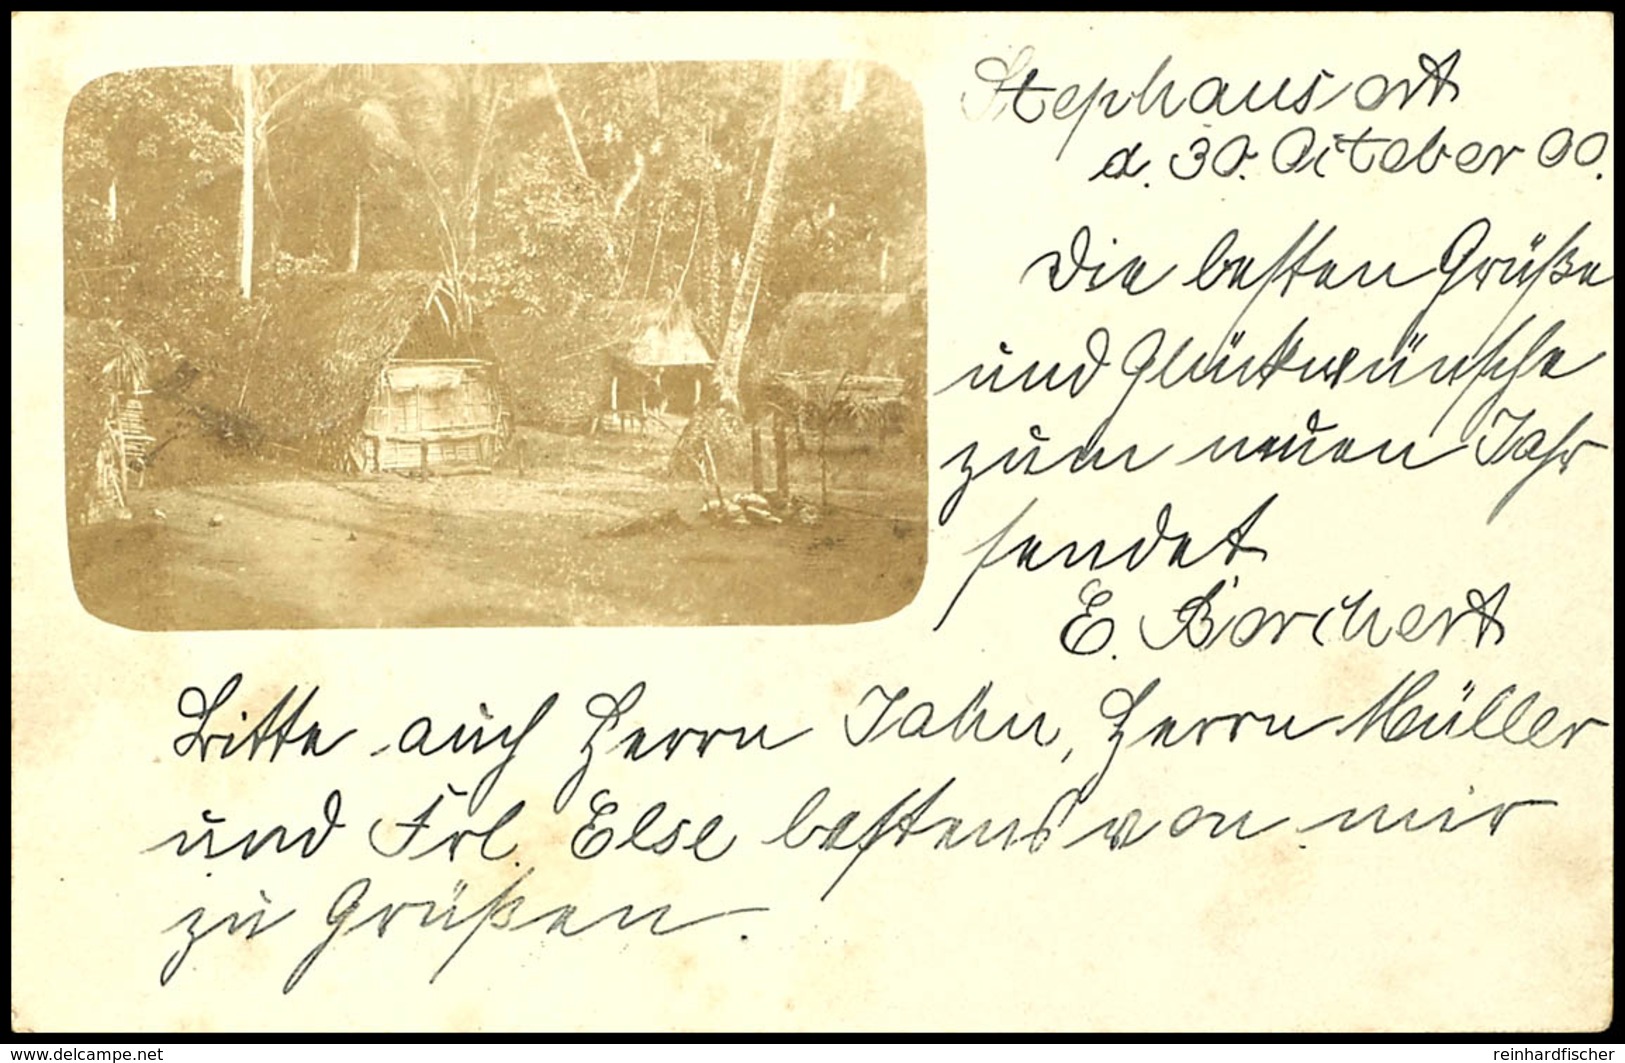 Stephansort
d. 30. October 00.
Die besten Grüße
und Glückwünsche
zum neuen Jahr
sendet
E. Borchert
Bitte auch Herrn Jahn, Herrn Müller
und Frl. Else bestens von mir
zu Grüßen.
www.delcampe.net
reinhardfischer